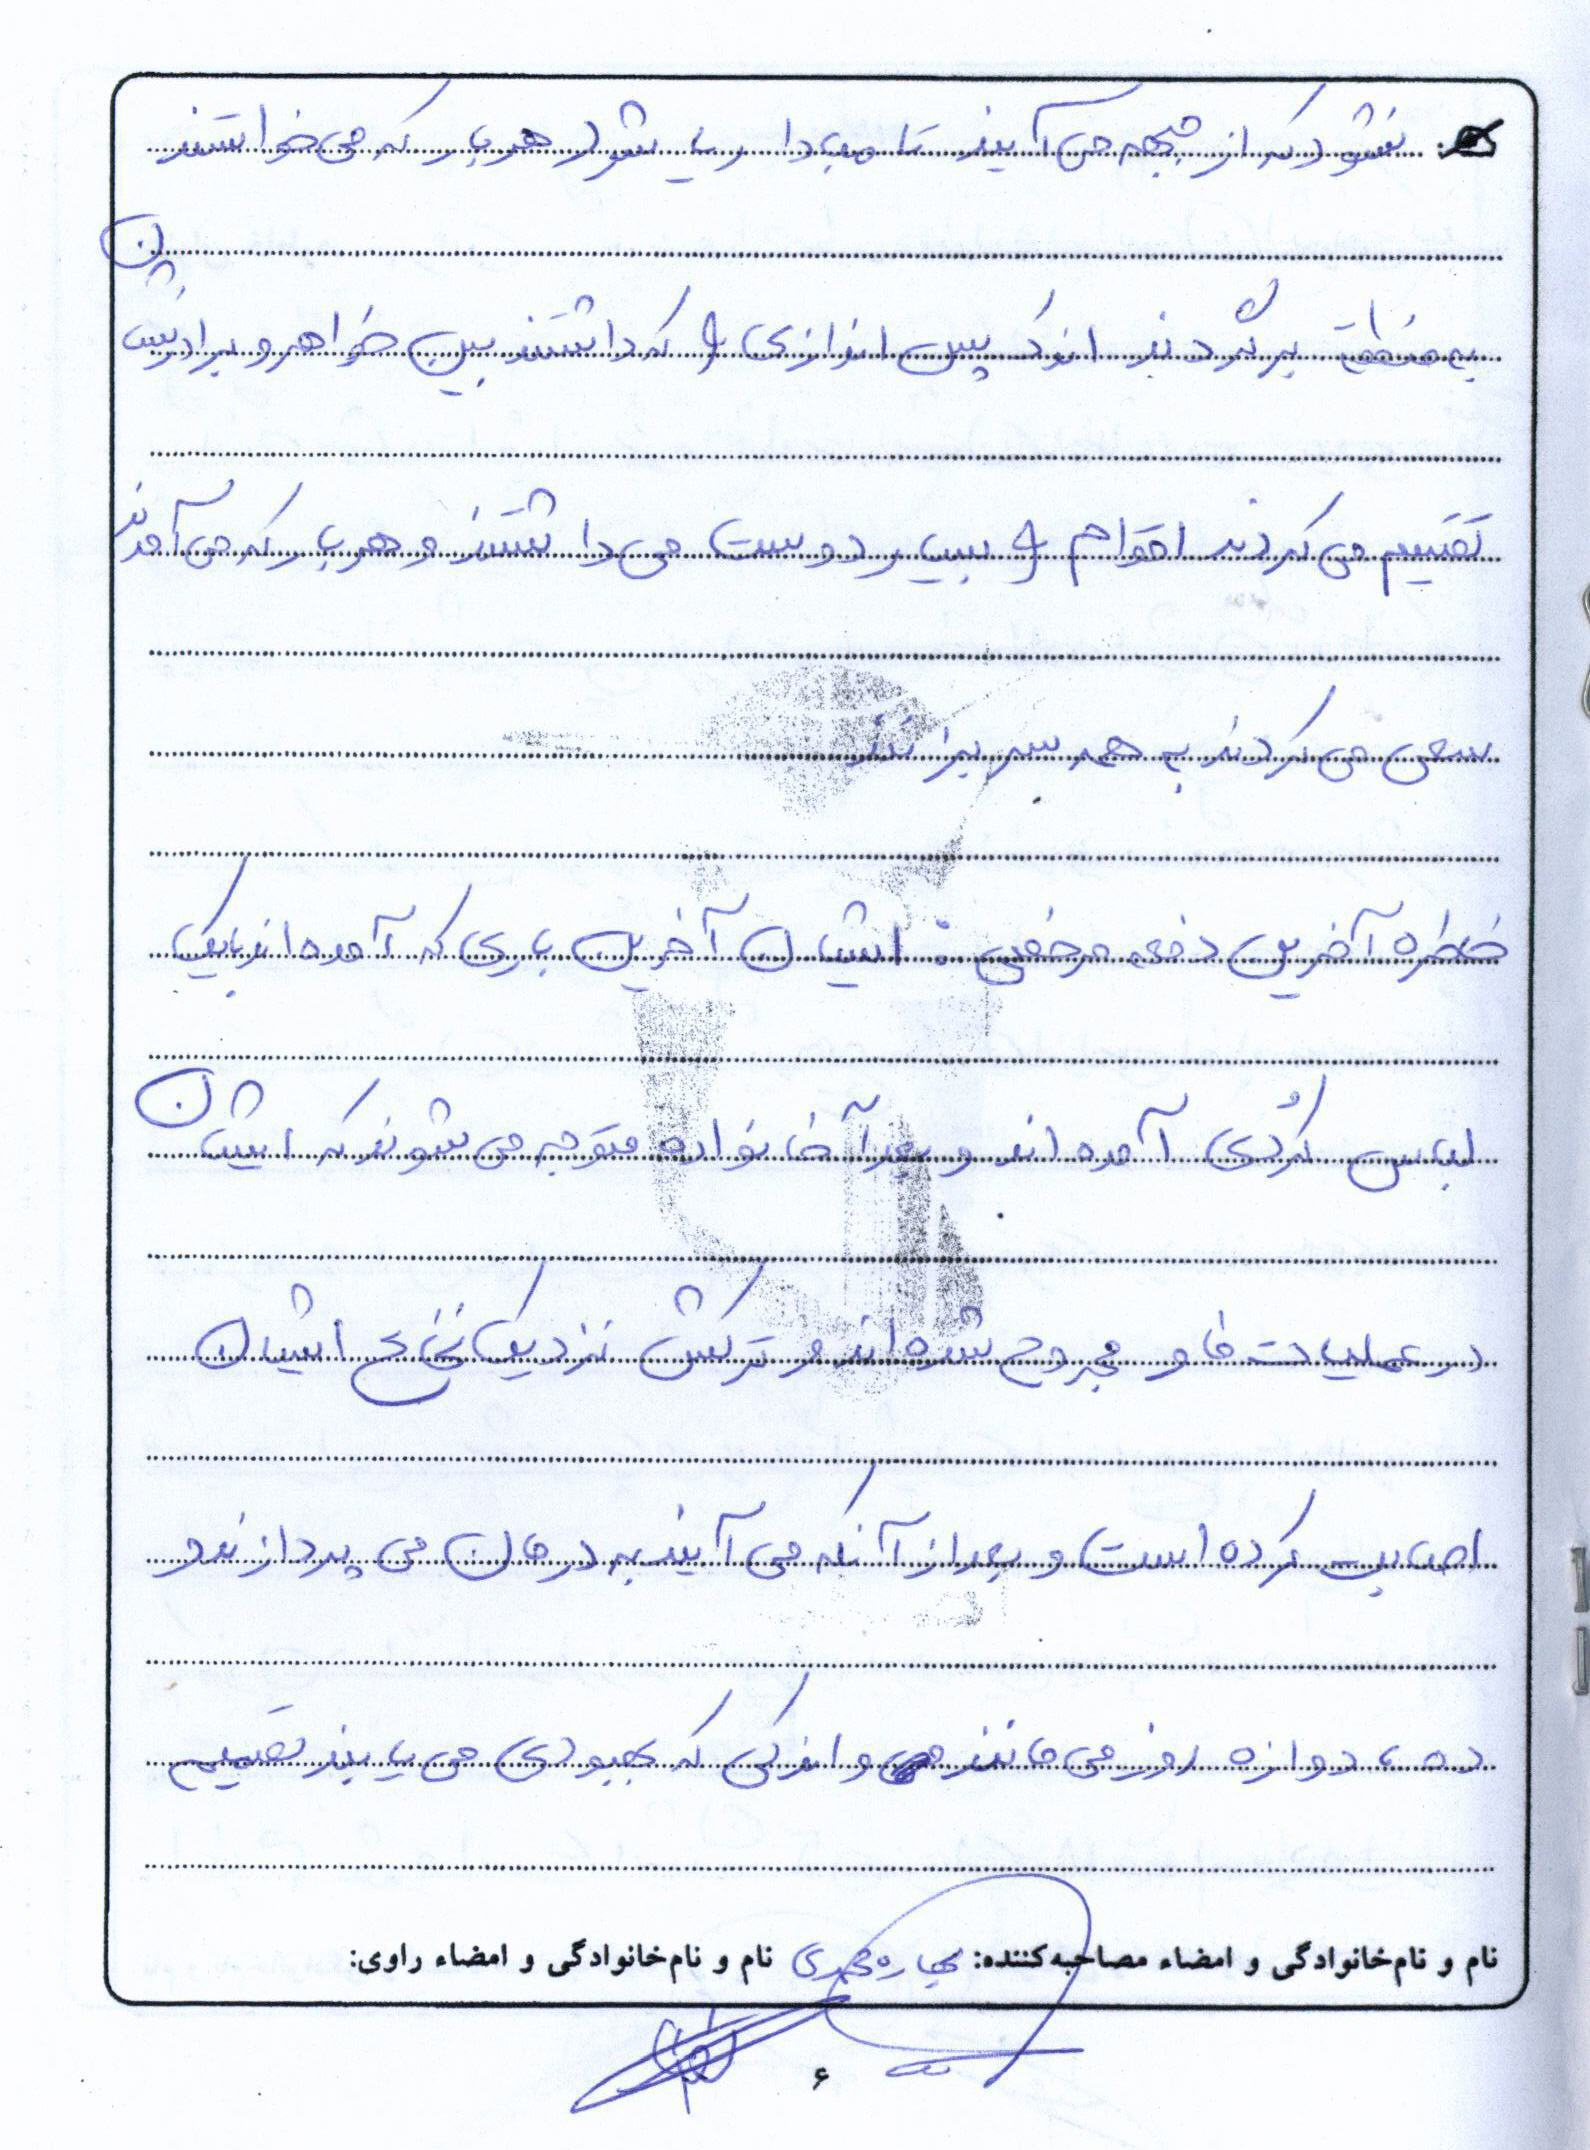 نشود که از جبهه می آیند تا مبادا ریا شود هر بار که می خواستند
به منطقه برگردند اندک پس اندازی را که داشتند بین خواهر و برادرشان
تقسیم می کردند اقوام را بسیار دوست می داشتند و هر بار که می آمدند
سعی می کردند به همه سر بزنند
خاطره آخرین دفعه مرخصی : ایشان آخرین باری که آمده اند با یک
لباس کُردی آمده اند و بعداً خانواده متوجه می شوند که ایشان
در عملیات فاو مجروح شده اند و ترکش نزدیک نخاع ایشان
اصابت کرده است و بعد از آنکه می آیند به درمان می پردازند و
ده ، دوازه روز می مانند و اندکی که بهبودی می یابند تصمیم
نام و نام‌خانوادگی و امضاء مصاحبه‌کننده: بهاره محمدی نام و نام‌خانوادگی و امضاء راوی:
۶